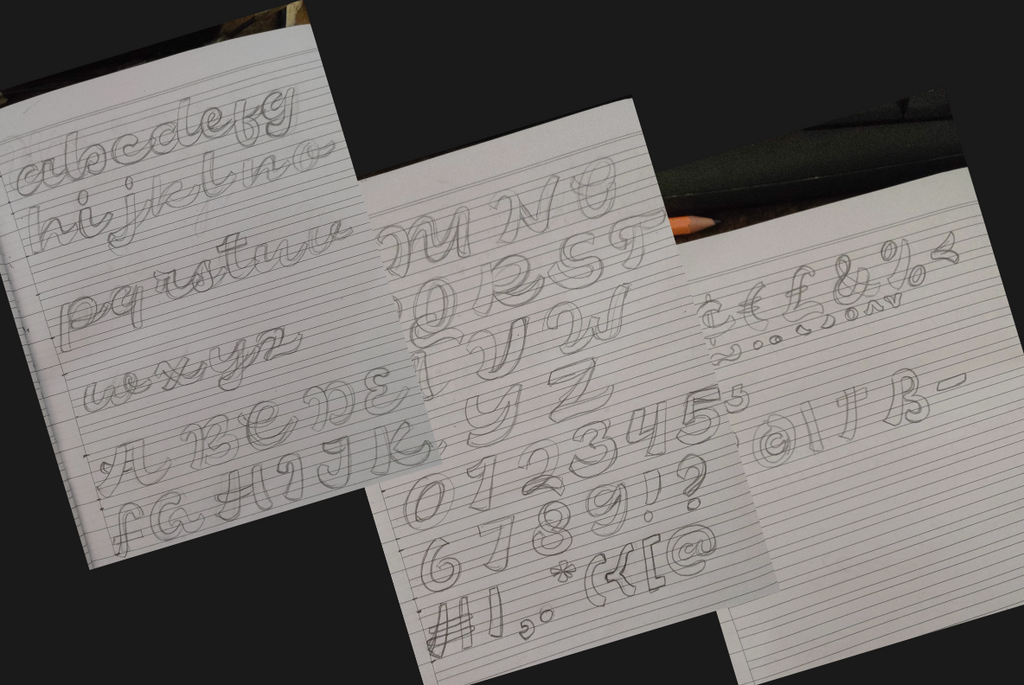 abcdefg
hijklmno
pqrstuv
wxyz
ABCDE
FGHIJK
MNO
QRST
UVW
YZ
012345
6789!?
*({[@
#|,.
¢€£&%
ß-